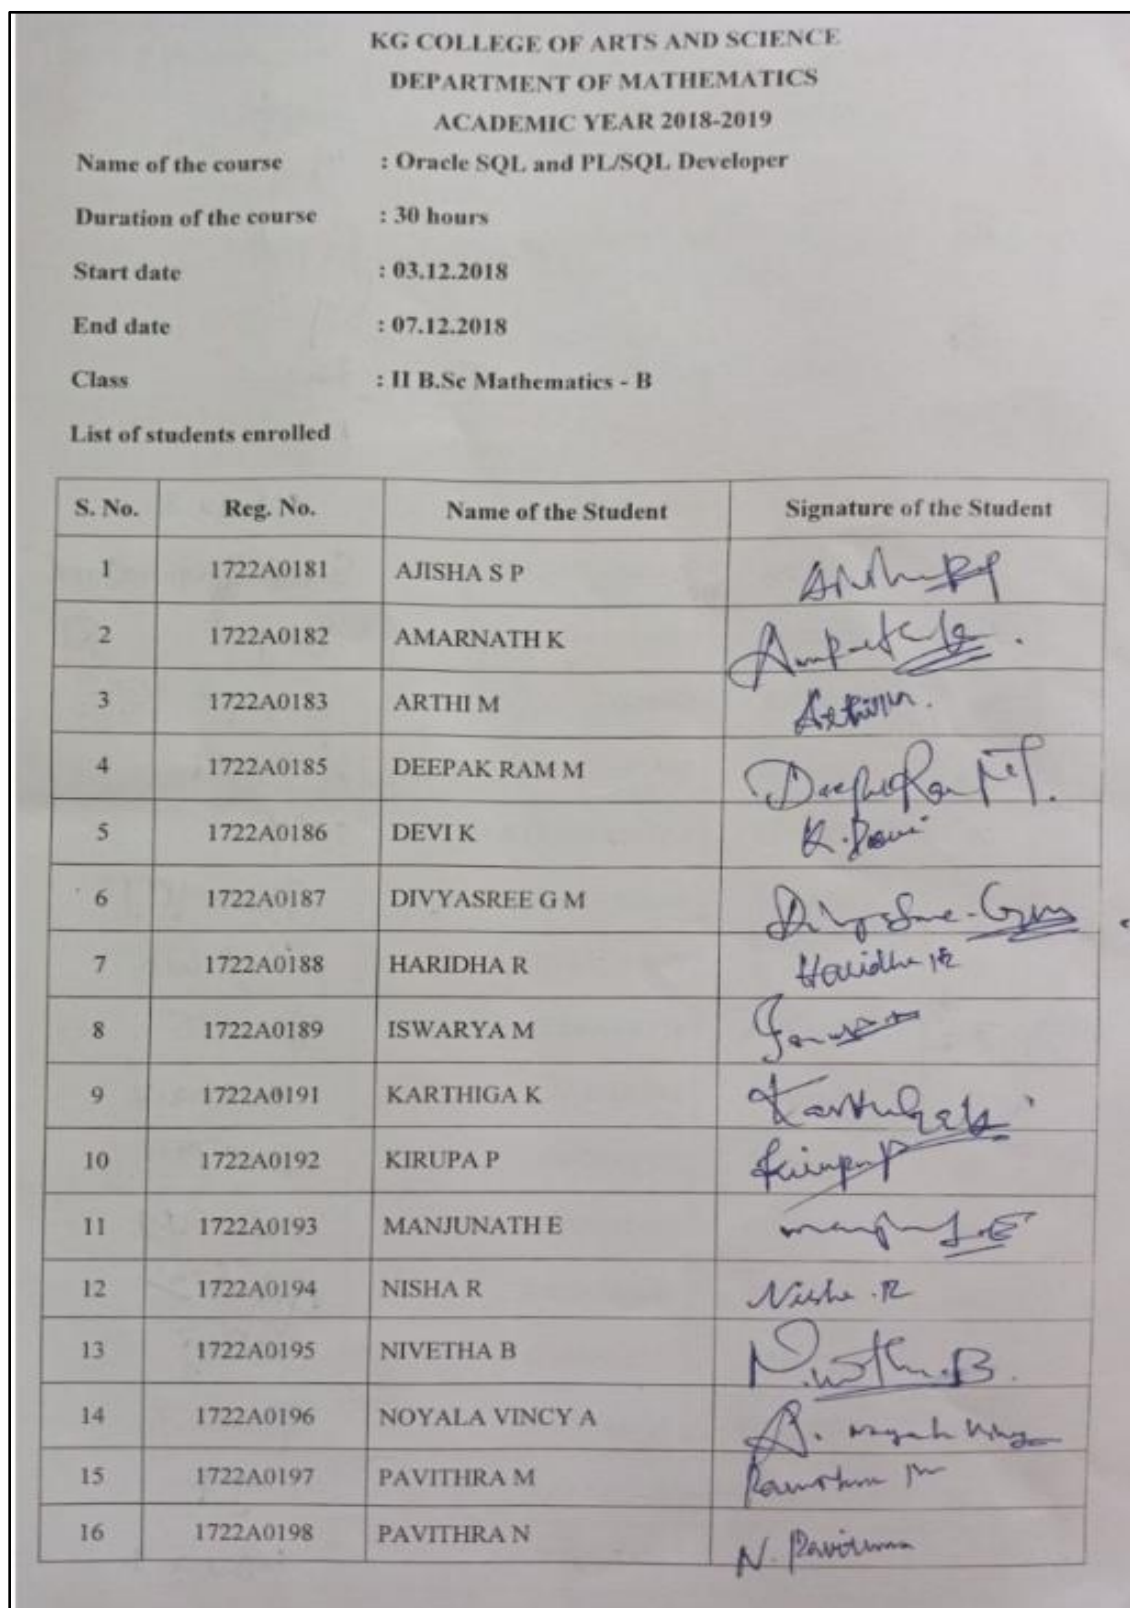 KG COLLEGE OF ARTS AND SCIENCE
DEPARTMENT OF MATHEMATICS
ACADEMIC YEAR 2018-2019
Name of the course : Oracle SQL and PL/SQL Developer
Duration of the course : 30 hours
Start date : 03.12.2018
End date : 07.12.2018
Class : II B.Sc Mathematics - B
List of students enrolled
S. No. Reg. No. Name of the Student Signature of the Student
1 1722A0181 AJISHA S P
2 1722A0182 AMARNATH K
3 1722A0183 ARTHI M
4 1722A0185 DEEPAK RAM M
5 1722A0186 DEVI K K. Devi
6 1722A0187 DIVYASREE G M
7 1722A0188 HARIDHA R Haridha R
8 1722A0189 ISWARYA M
9 1722A0191 KARTHIGA K
10 1722A0192 KIRUPA P
11 1722A0193 MANJUNATH E
12 1722A0194 NISHA R Nisha .R
13 1722A0195 NIVETHA B
14 1722A0196 NOYALA VINCY A
15 1722A0197 PAVITHRA M
16 1722A0198 PAVITHRA N